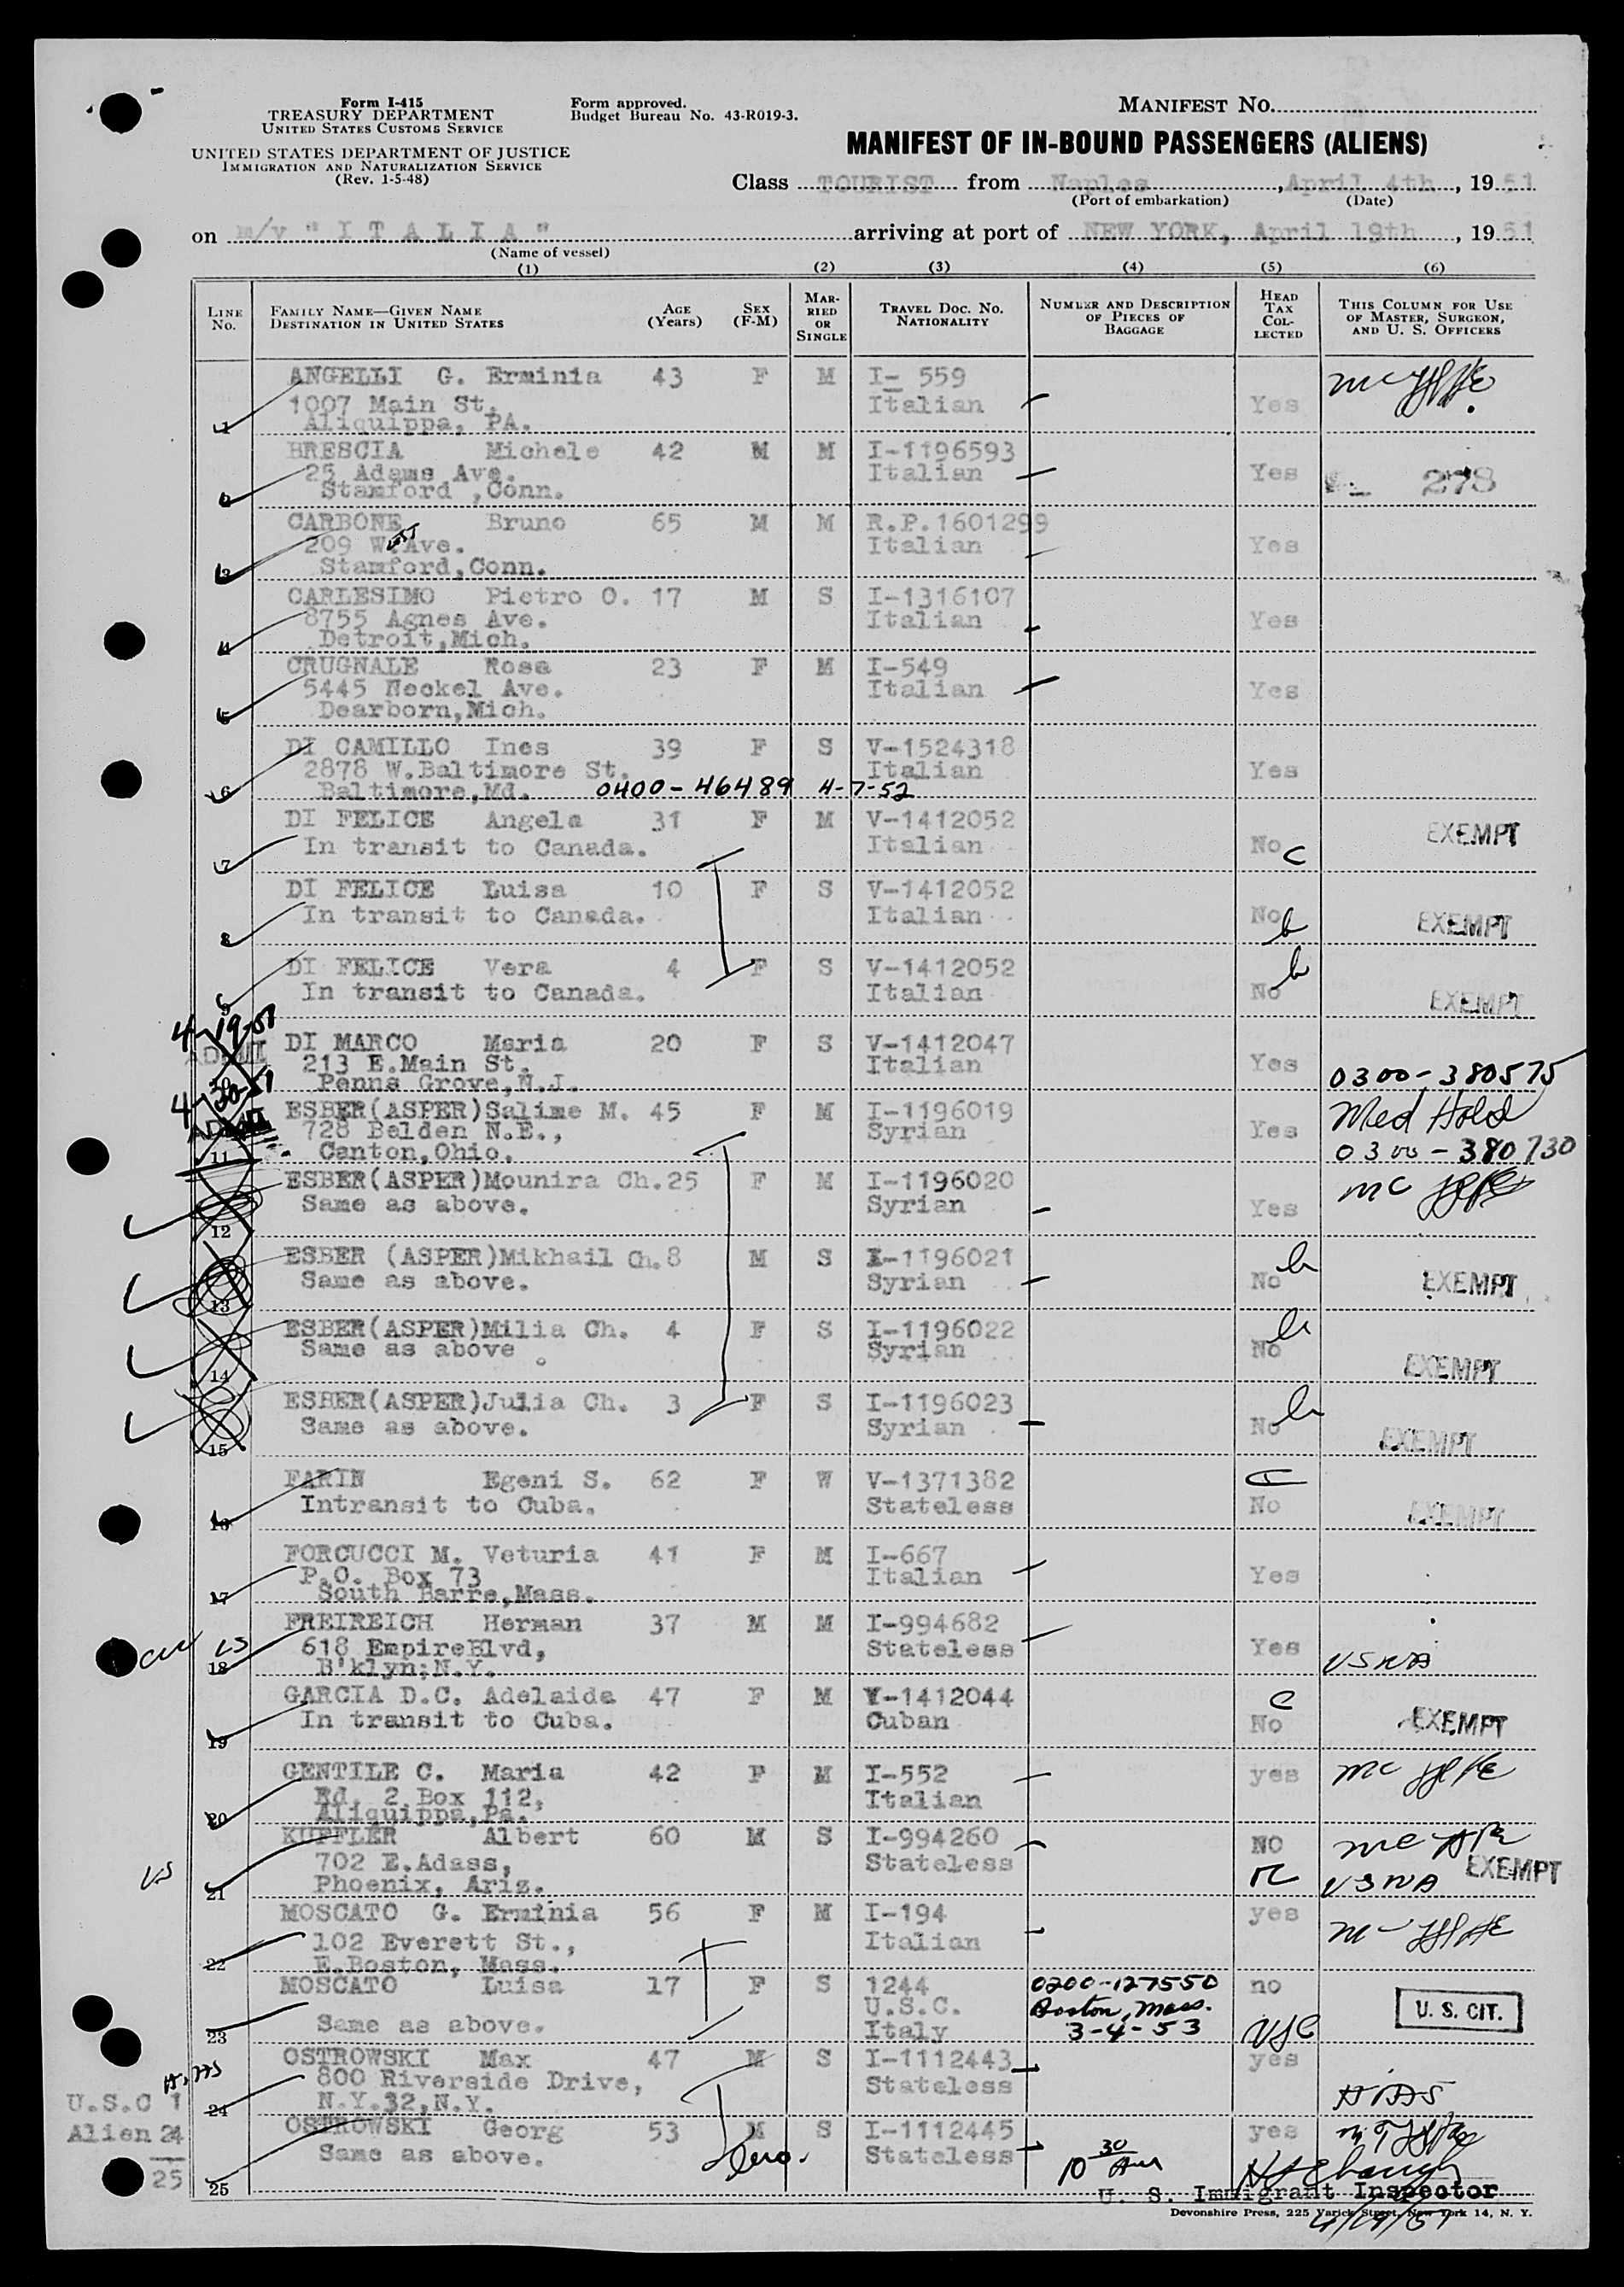 Form I-415
TREASURY DEPARTMENT
UNITED STATES CUSTOMS SERVICE
UNITED STATES DEPARTMENT OF JUSTICE
IMMIGRATION AND NATURALIZATION SERVICE
(Rev. 1-5-48)
Form approved.
Budget Bureau No. 43-R019-3.
MANIFEST No.
MANIFEST OF IN-BOUND PASSENGERS (ALIENS)
Class TOURIST from Naples, April 4th, 1951
(Port of embarkation) (Date)
on m/v "ITALIA" arriving at port of NEW YORK, April 19th, 1951
(Name of vessel)
(1) (2) (3) (4) (5) (6)
LINE No. FAMILY NAME—GIVEN NAME DESTINATION IN UNITED STATES AGE (Years) SEX (F-M) MARRIED OR SINGLE TRAVEL DOC. NO. NATIONALITY NUMBER AND DESCRIPTION OF PIECES OF BAGGAGE HEAD TAX COLLECTED THIS COLUMN FOR USE OF MASTER, SURGEON, AND U. S. OFFICERS
ANGELLI G. Erminia 43 F M I- 559
1007 Main St. Italian Yes
1 Aliquippa, PA.
BRESCIA Michele 42 M M I-1196593
25 Adams Ave. Italian Yes 278
2 Stamford ,Conn.
CARBONE Bruno 65 M M R.P.1601299
209 W. Ave. Italian Yes
3 Stamford,Conn.
CARLESIMO Pietro O. 17 M S I-1316107
8755 Agnes Ave. Italian Yes
4 Detroit,Mich.
CRUGNALE Rosa 23 F M I-549
5445 Neckel Ave. Italian Yes
5 Dearborn,Mich.
DI CAMILLO Ines 39 F S V-1524318
2878 W.Baltimore St. Italian Yes
6 Baltimore,Md. 0400-46489 4-7-52
DI FELICE Angela 31 F M V-1412052 EXEMPT
7 In transit to Canada. Italian No c
DI FELICE Luisa 10 F S V-1412052
8 In transit to Canada. Italian No b EXEMPT
DI FELICE Vera 4 F S V-1412052 b
In transit to Canada. Italian No EXEMPT
4-19-51
DI MARCO Maria 20 F S V-1412047
213 E.Main St. Italian Yes
Penns Grove,N.J. 0300-380575
4-30-51
ESBER(ASPER)Salime M. 45 F M I-1196019 Med Hold
728 Belden N.E., Syrian Yes
11 Canton,Ohio. 0300-380730
ESBER(ASPER)Mounira Ch.25 F M I-1196020
12 Same as above. Syrian Yes
ESBER (ASPER)Mikhail Ch.8 M S I-1196021 b
13 Same as above. Syrian No EXEMPT
ESBER(ASPER)Milia Ch. 4 F S I-1196022
14 Same as above. Syrian No EXEMPT
ESBER(ASPER)Julia Ch. 3 F S I-1196023
15 Same as above. Syrian No EXEMPT
FARIN Egeni S. 62 F W V-1371382
16 Intransit to Cuba. Stateless No EXEMPT
FORCUCCI M. Veturia 41 F M I-667
P.O. Box 73 Italian Yes
17 South Barre,Mass.
FREIREICH Herman 37 M M I-994682
618 EmpireBlvd, Stateless Yes USNA
18 B'klyn;N.Y.
GARCIA D.C. Adelaida 47 F M V-1412044 c
19 In transit to Cuba. Cuban No EXEMPT
GENTILE C. Maria 42 F M I-552 yes
Rd. 2 Box 112, Italian
20 Aliquippa,Pa.
KUFFLER Albert 60 M S I-994260 NO
702 E.Adass, Stateless EXEMPT
21 Phoenix, Ariz. USNA
MOSCATO G. Erminia 56 F M I-194 yes
102 Everett St., Italian
22 E.Boston, Mass.
MOSCATO Luisa 17 F S 1244 0200-127550 no
U.S.C. Boston, Mass. U. S. CIT.
23 Same as above. Italy 3-4-53 USC
OSTROWSKI Max 47 M S I-1112443 yes
800 Riverside Drive, Stateless
24 N.Y.32,N.Y.
OSTROWSKI Georg 53 M S I-1112445 yes
Same as above. Stateless 10 30 Am
25
U.S.C 1
Alien 24
25
U. S. Immigrant Inspector
Devonshire Press, 225 Varick Street, New York 14, N. Y.
4/19/51